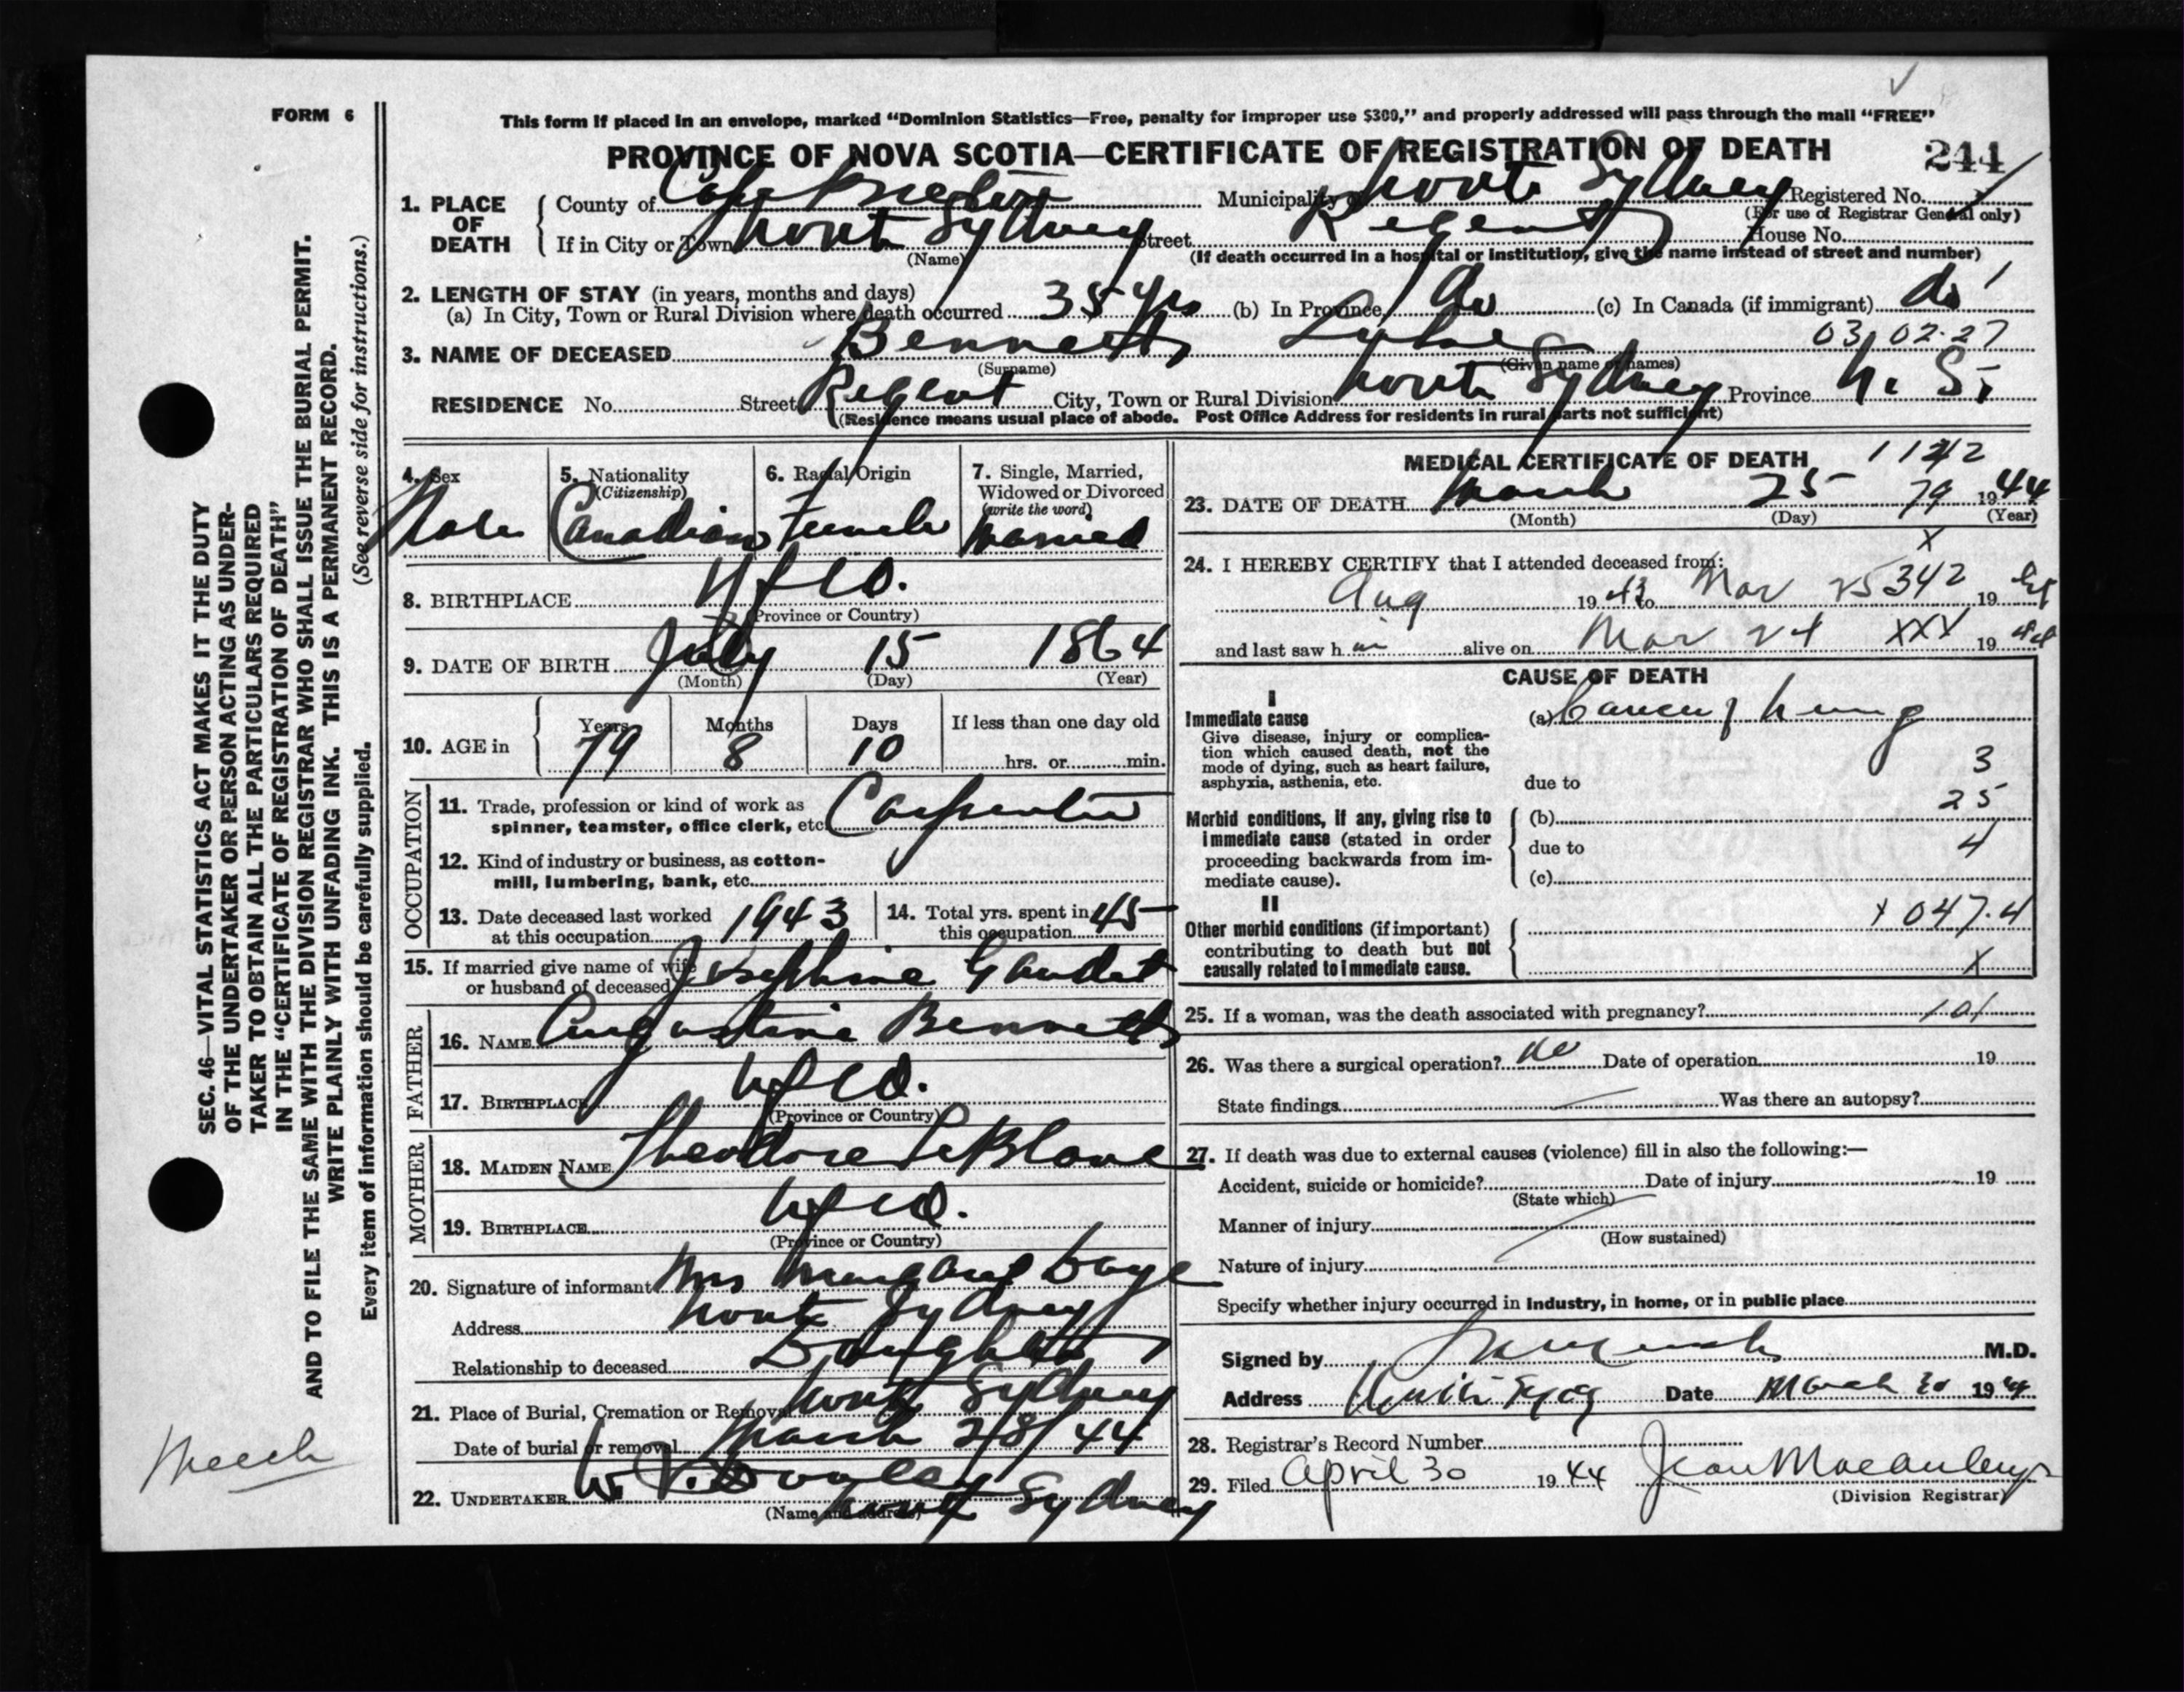 FORM 6
This form if placed in an envelope, marked "Dominion Statistics—Free, penalty for improper use $300," and properly addressed will pass through the mail "FREE"
PROVINCE OF NOVA SCOTIA—CERTIFICATE OF REGISTRATION OF DEATH 244
1. PLACE OF DEATH
County of Cape Breton Municipality North Sydney Registered No.
(For use of Registrar General only)
If in City or Town North Sydney Street Regent House No.
(Name) (If death occurred in a hospital or institution, give the name instead of street and number)
2. LENGTH OF STAY (in years, months and days)
(a) In City, Town or Rural Division where death occurred 35 yrs (b) In Province do (c) In Canada (if immigrant) do
3. NAME OF DECEASED Bennett, Luke 03 02.27
(Surname) (Given name or names)
RESIDENCE No. Street Regent City, Town or Rural Division North Sydney Province N. S.
(Residence means usual place of abode. Post Office Address for residents in rural parts not sufficient)
4. Sex Male
5. Nationality (Citizenship) Canadian
6. Racial Origin French
7. Single, Married, Widowed or Divorced (write the word) Married
8. BIRTHPLACE Nfld.
(Province or Country)
9. DATE OF BIRTH July 15 1864
(Month) (Day) (Year)
10. AGE in Years 79 Months 8 Days 10 If less than one day old hrs. or min.
OCCUPATION
11. Trade, profession or kind of work as spinner, teamster, office clerk, etc. Carpenter
12. Kind of industry or business, as cotton-mill, lumbering, bank, etc.
13. Date deceased last worked at this occupation 1943
14. Total yrs. spent in this occupation 45
15. If married give name of wife or husband of deceased Josephine Gaudet
FATHER
16. NAME Augustine Bennett
17. BIRTHPLACE Nfld.
(Province or Country)
MOTHER
18. MAIDEN NAME Theodore LeBlanc
19. BIRTHPLACE Nfld.
(Province or Country)
20. Signature of informant Mrs Margaret Daye
Address North Sydney
Relationship to deceased Daughter
21. Place of Burial, Cremation or Removal North Sydney
Date of burial or removal March 28/44
22. UNDERTAKER W. J. Dooley North Sydney
(Name and address)
MEDICAL CERTIFICATE OF DEATH 1142
23. DATE OF DEATH March 25 79 1944
(Month) (Day) (Year)
X
24. I HEREBY CERTIFY that I attended deceased from:
Aug 1943 to Mar 25 342 1944
and last saw h im alive on Mar 24 XXX 1944
CAUSE OF DEATH
I
Immediate cause
Give disease, injury or complication which caused death, not the mode of dying, such as heart failure, asphyxia, asthenia, etc.
(a) Cancer of Lung
3
due to
25
Morbid conditions, if any, giving rise to immediate cause (stated in order proceeding backwards from immediate cause).
(b)
due to 4
(c)
II
Other morbid conditions (if important) contributing to death but not causally related to immediate cause.
X 047.4
X
25. If a woman, was the death associated with pregnancy? 101
26. Was there a surgical operation? no Date of operation 19
State findings Was there an autopsy?
27. If death was due to external causes (violence) fill in also the following:—
Accident, suicide or homicide? Date of injury 19
(State which)
Manner of injury
(How sustained)
Nature of injury
Specify whether injury occurred in Industry, in home, or in public place
Signed by M.D.
Address North Sydney Date March 30 1944
28. Registrar's Record Number
29. Filed April 30 1944 Jean Macaulay
(Division Registrar)
SEC. 46—VITAL STATISTICS ACT MAKES IT THE DUTY
OF THE UNDERTAKER OR PERSON ACTING AS UNDER-
TAKER TO OBTAIN ALL THE PARTICULARS REQUIRED
IN THE "CERTIFICATE OF REGISTRATION OF DEATH"
AND TO FILE THE SAME WITH THE DIVISION REGISTRAR WHO SHALL ISSUE THE BURIAL PERMIT.
WRITE PLAINLY WITH UNFADING INK. THIS IS A PERMANENT RECORD.
(See reverse side for instructions.)
Every item of information should be carefully supplied.